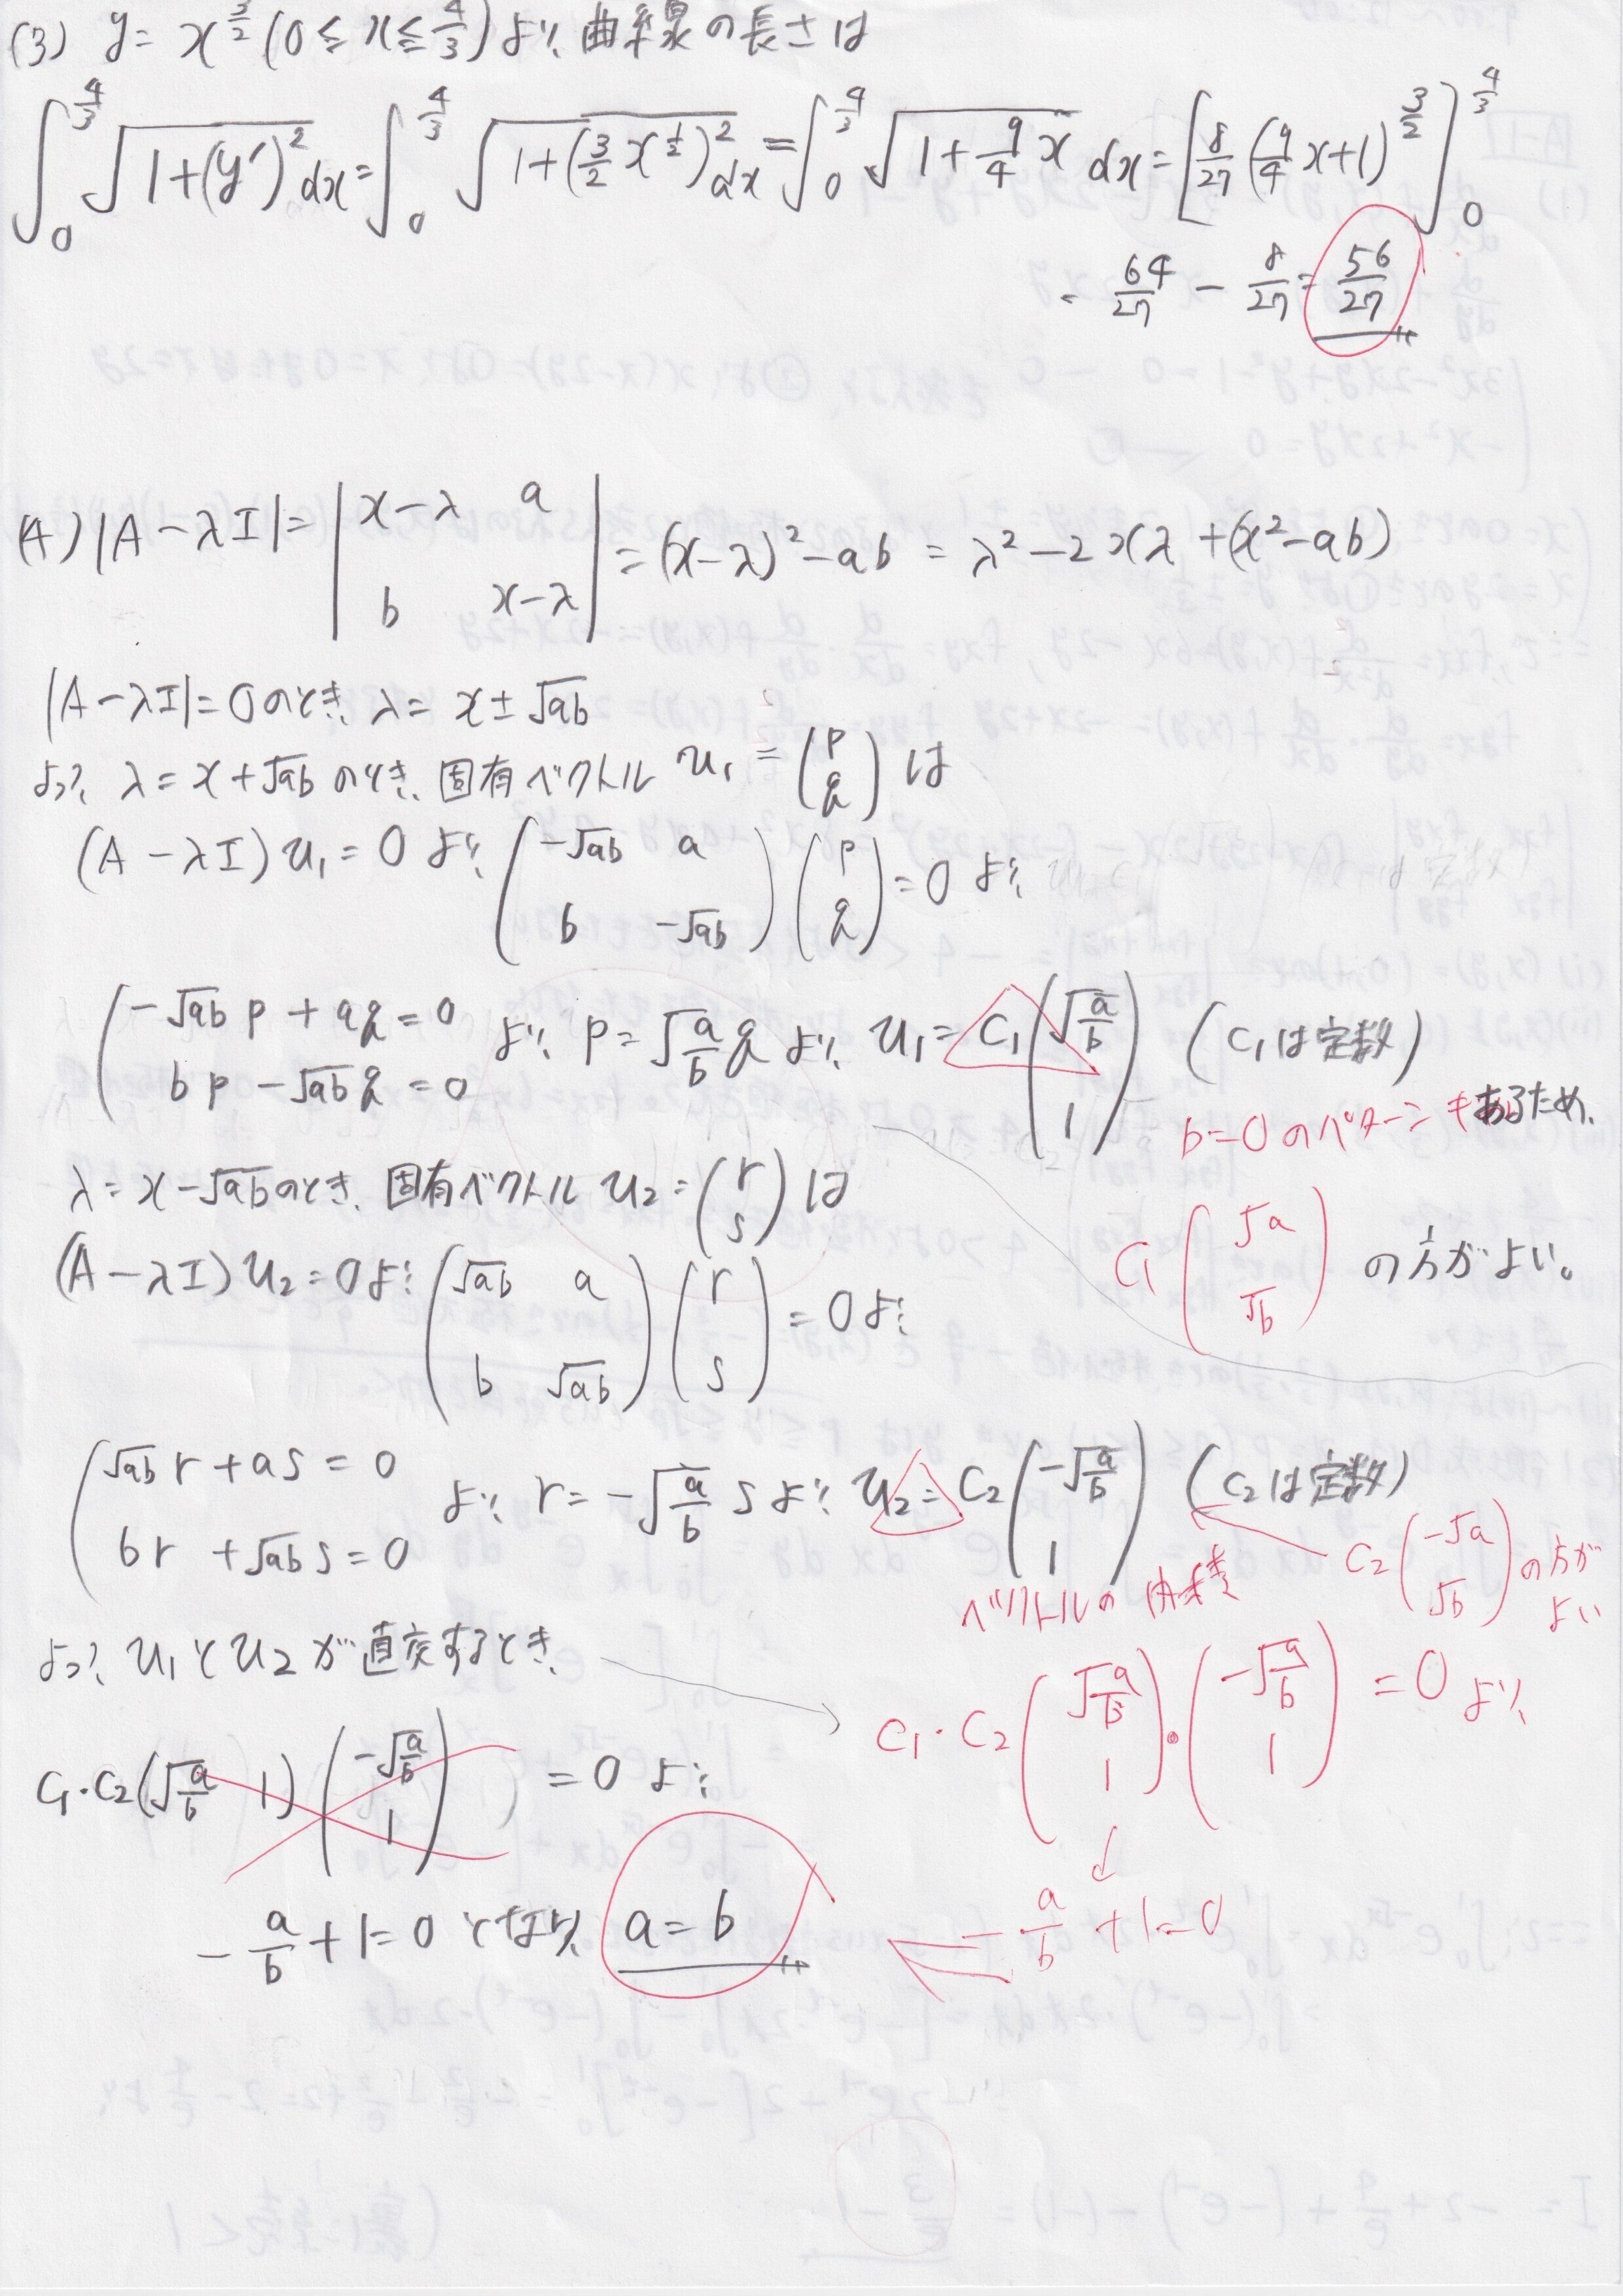 (3) y = x^{3/2} (0 ≦ x ≦ 4/3) より、曲線の長さは
∫_0^{4/3} √(1+(y')^2) dx = ∫_0^{4/3} √(1+(3/2 x^{1/2})^2) dx = ∫_0^{4/3} √(1+9/4 x) dx = [8/27 (9/4 x+1)^{3/2}]_0^{4/3}
= 64/27 − 8/27 = 56/27
(4) |A − λI| = |x−λ a; b x−λ| = (x−λ)^2 − ab = λ^2 − 2xλ + (x^2 − ab)
|A − λI| = 0 のとき、λ = x ± √ab
よって、λ = x + √ab のとき、固有ベクトル u_1 = (p; q) は
(A − λI) u_1 = 0 より、(−√ab a; b −√ab) (p; q) = 0 より、
(−√ab p + aq = 0; bp − √ab q = 0 より、p = √(a/b) q より、u_1 = C_1 (√(a/b); 1) (C_1は定数)
b=0のパターンもあるため、
C_1 (√a; √b) の方がよい。
λ = x − √ab のとき、固有ベクトル u_2 = (r; s) は
(A − λI) u_2 = 0 より、(√ab a; b √ab) (r; s) = 0 より、
(√ab r + as = 0; br + √ab s = 0 より、r = −√(a/b) s より、u_2 = C_2 (−√(a/b); 1) (C_2は定数)
C_2 (−√a; √b) の方がよい
ベクトルの内積
よって、u_1 と u_2 が直交するとき、
C_1・C_2 (√(a/b); 1)・(−√(a/b); 1) = 0 より、
C_1・C_2 (√(a/b) 1) (−√(a/b); 1) = 0 より、
−a/b + 1 = 0 となり、a = b
−a/b + 1 = 0